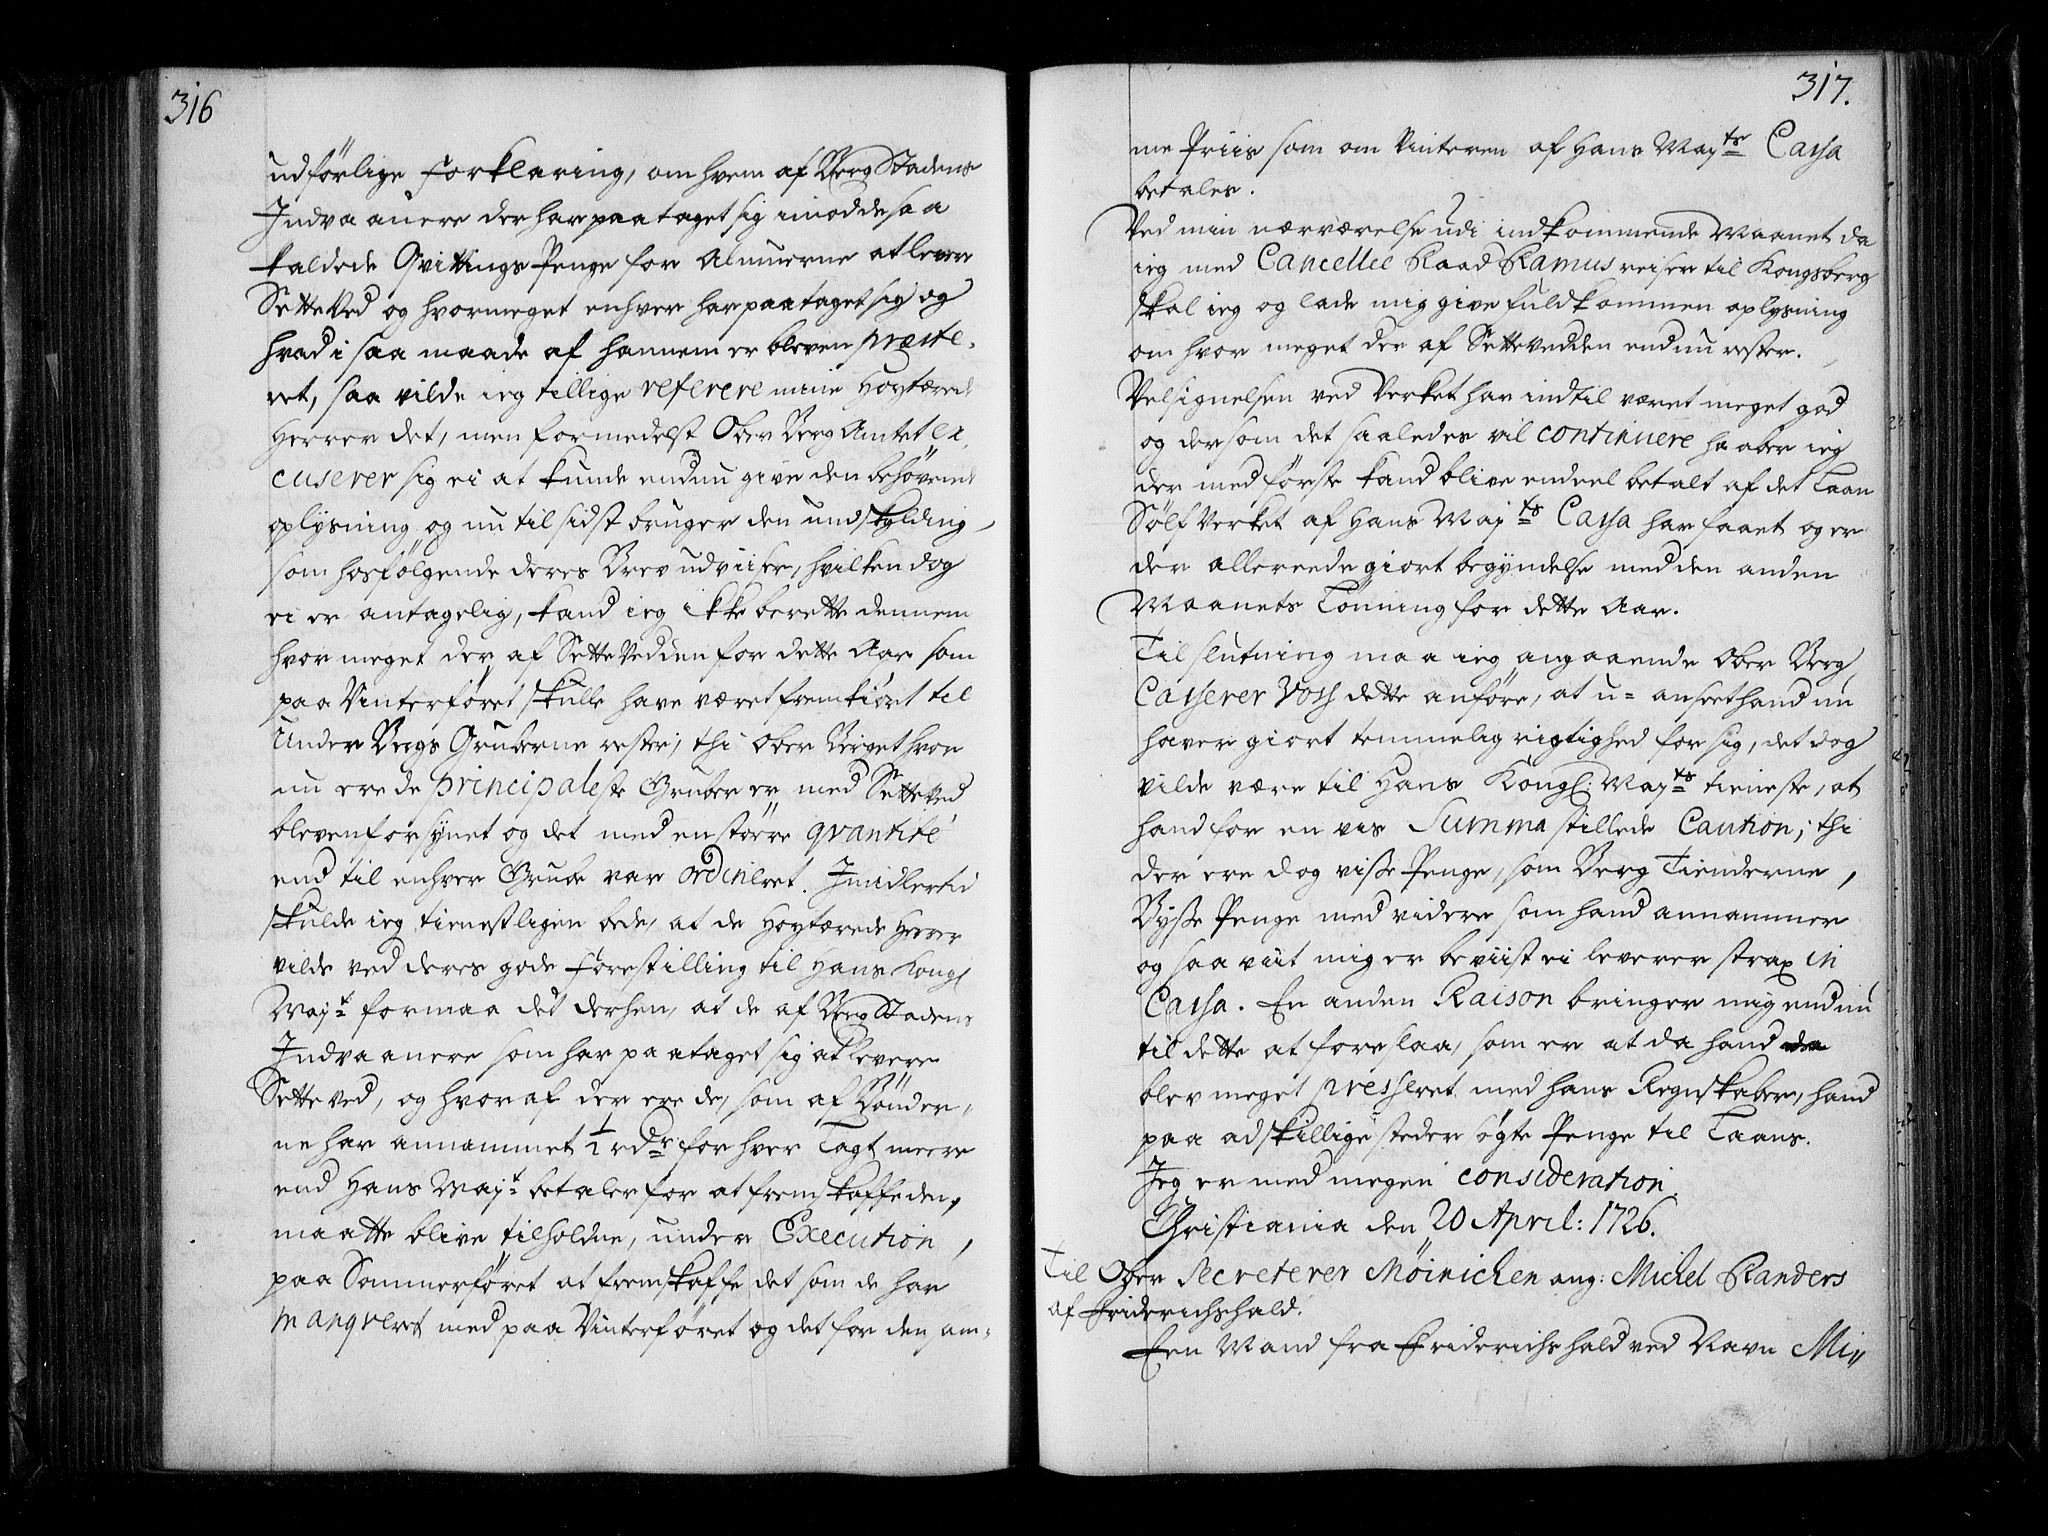 316
udførlige forklaring, om hvem af Berg Stadens
Indvaanere der har paataget sig imod de saa
kaldede Qvittings Penge for Almuerne at levere
SetteVed og hvormeget enhver har paataget sig og
hvad i saa maade af hannem er bleven præste-
ret, saa vilde ieg tillige referere mine Høytærede
Herrer det, men formedelst Ober Berg Amtet ex-
cuserer sig ei at kunde endnu give den behøvende
oplysning og nu til sidst bruger den undskylding,
som hosfølgende deres Brev udviiser, hvilken dog
ei er antagelig, kand ieg ikke berette dennem
hvor meget der af SetteVedden for dette Aar som
paa Vinterføret skulle have været fremkiørt til
Under Bergs Gruberne rester; thi Ober Berget hvor
nu ere de principaleste Gruber er med SetteVed
bleven forsynet og det med en større qvantité
end til enhver Grube var ordineret. Imidlertid
skulde ieg tienestligen bede, at de Høytærede Herrer
vilde ved deres gode forestilling til Hans Kongl
Mayt formaa det derhen, at de af Berg Stadens
Indvaanere som har paataget sig at levere
SetteVed, og hvoraf der ere de, som af Bønder-
ne har annammet ½ rdr for hver Lagt meere
end Hans Mayt betaler for at fremskaffe den,
maatte blive tilholdne, under Execution,
paa Sommerføret at fremskaffe det som de har
manqveret med paa Vinterføret og det for den sam-
317.
me Priis som om Vinteren af Hans Mayts Cassa
betales.
Ved min nærværelse udi indkommende Maanet da
ieg med Cancellie Raad Ramus reiser til Kongsberg
skal ieg og lade mig give fuldkommen oplysning
om hvor meget der af SetteVedden endnu rester.
Velsignelsen ved Verket har indtil været meget god
og dersom det saaledes vil continuere haaber ieg
der med første kand blive endeel betalt af det Laan
Sølf Verket af Hans Mayts Cassa har faaet og er
der allereede giort begyndelse med den anden
Maanets Lønning for dette Aar.
Til slutning maa ieg angaaende Ober Berg
Casserer Voss dette anføre, at u-anseet hand nu
haver giort temmelig rigtighed for sig, det dog
vilde være til Hans Kongl: Mayts tieneste, at
hand for en vis Summa stillede Caution; thi
der ere dog visse Penge, som Berg Tienderne,
Bysse Penge med videre som hand annammer
og saa viit mig er beviist ei leverer strax in
Cassa. En anden Raison bringer mig endnu
til dette at foreslaa, som er at da hand
blev meget presseret med hans Regnskaber, hand
paa adskillige steder søgte Penge til Laans.
Jeg er med megen consideration.
Christiania den 20 April: 1726.
Til Ober Secreterer Møinichen ang: Michel Randers
af Friderichshald.
Een Mand fra Friderichshald ved Navn Mi-